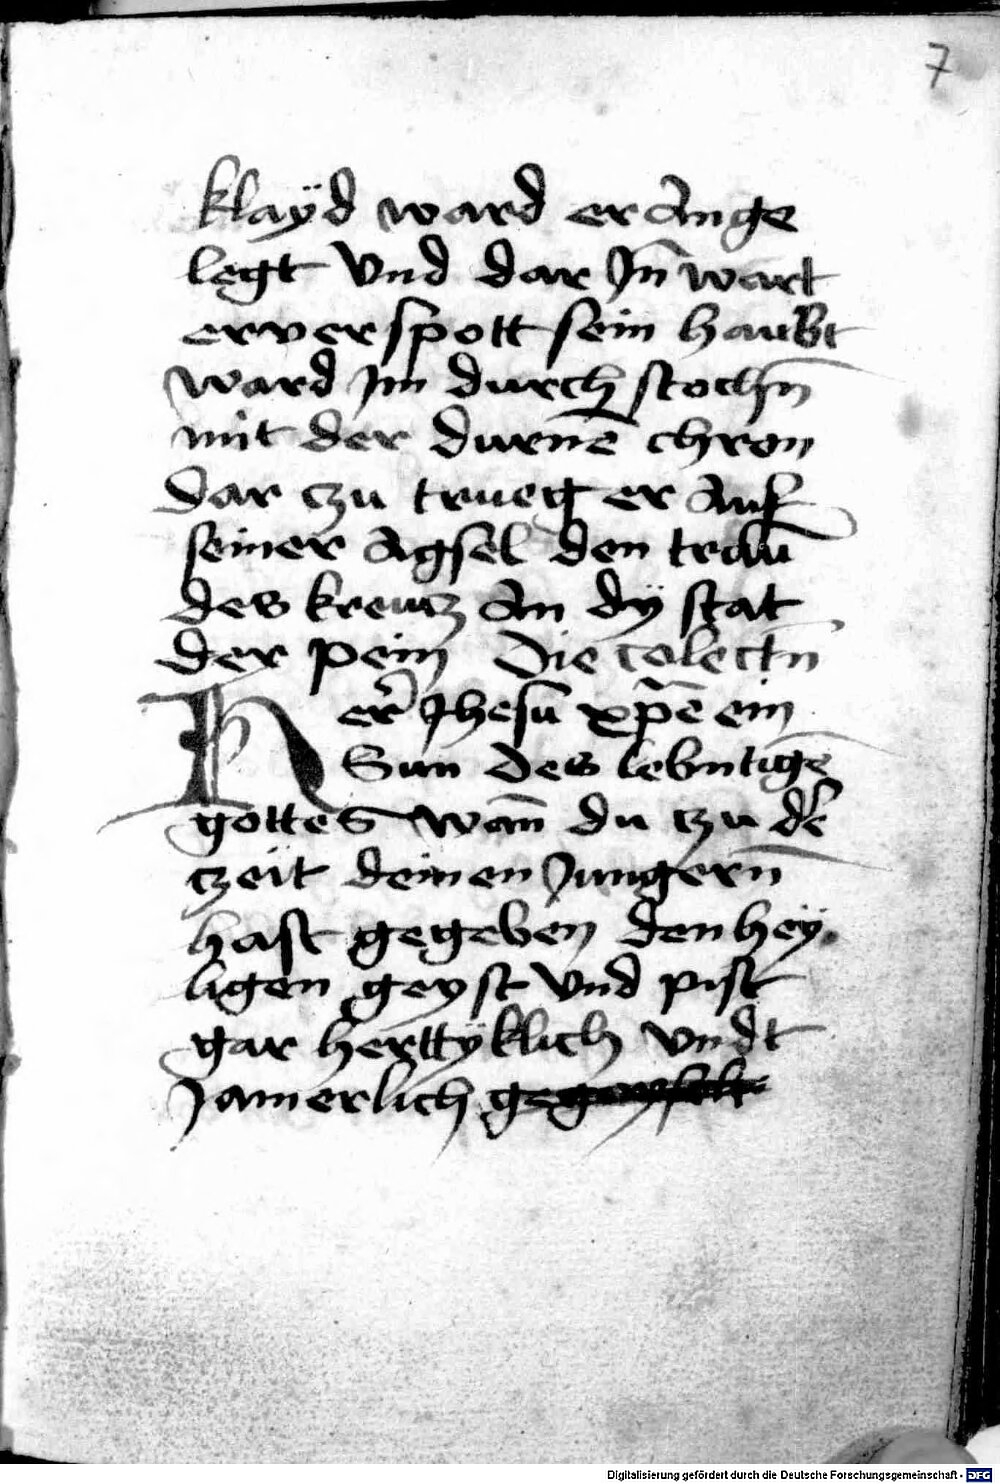 7
klaÿd ward er Ange
legt Vnd dar Jn̄ wart
er verspott sein haubt
ward Jm durch stochn̄
mit der durnē chron
dar czu trueg er Auf
seiner Agsel den traū
des kreutz An dÿ stat
der pein Die colectn̄
Her Jhesu xp̄e ein
Sun des lebntigē
gottes wan̄ du czu der
czeit deinen Jungern
hast gegeben den heÿ
ligen geyst Vnd pist
gar herttÿklich vndt
Jamerlich
Digitalisierung gefördert durch die Deutsche Forschungsgemeinschaft - DFG